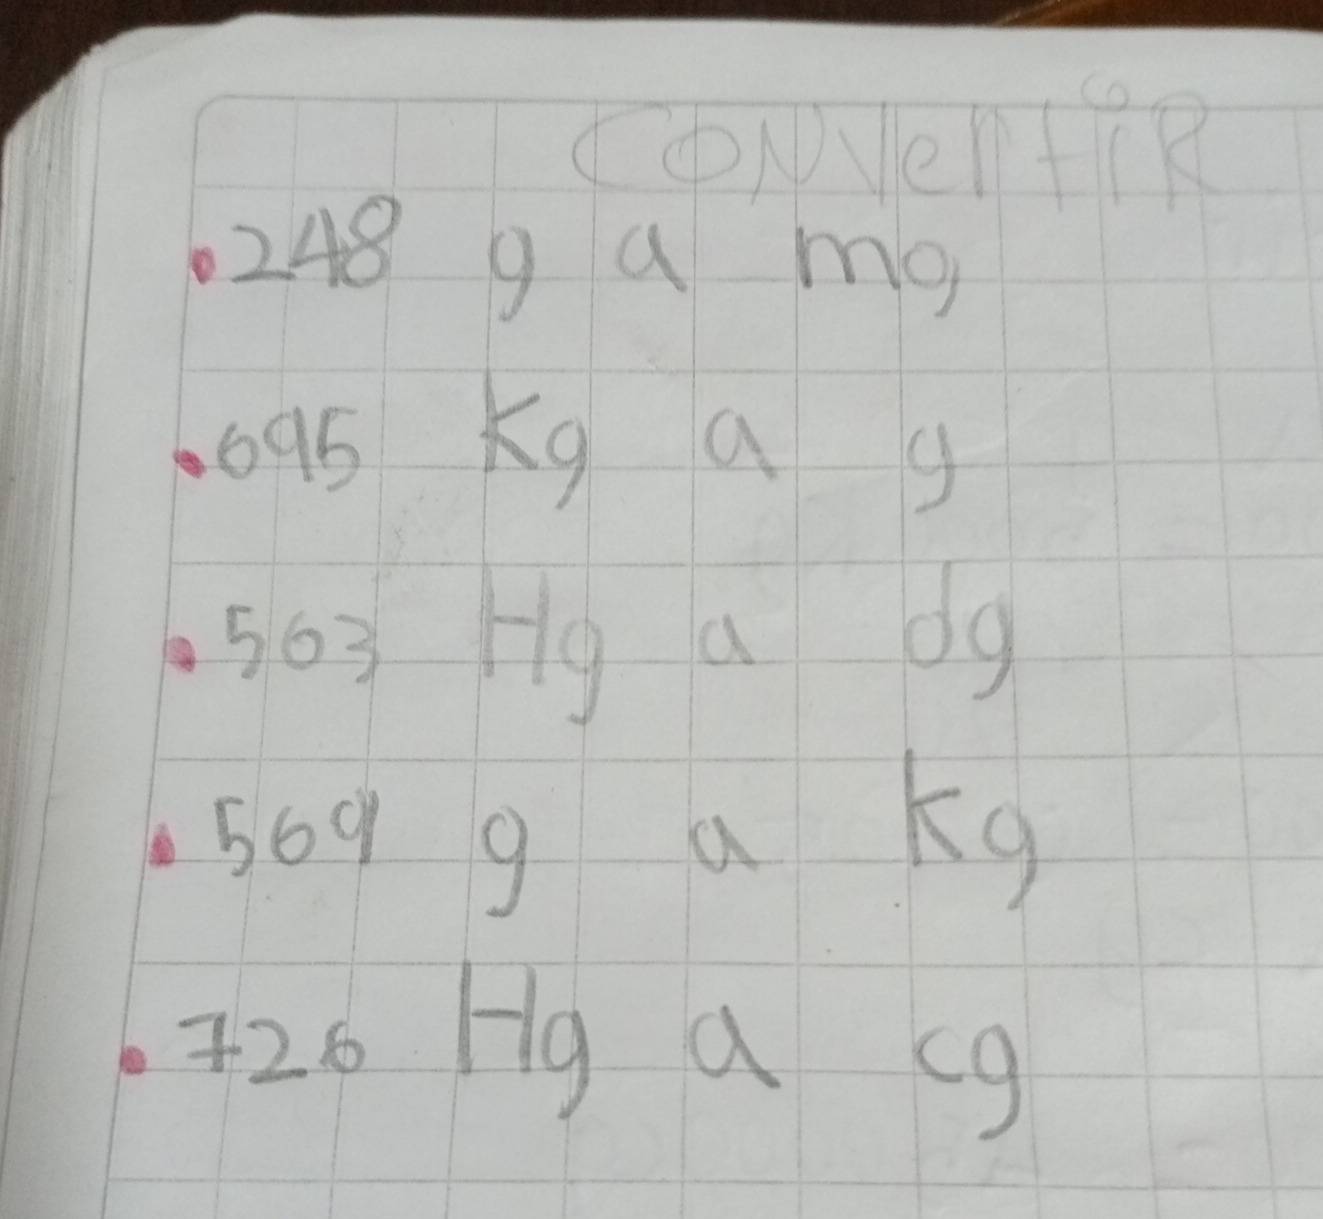 CONVertiR
•248 g a mg
•695 Kg a g
•563 Hg a dg
•569 g a Kg
•726 Hg a cg